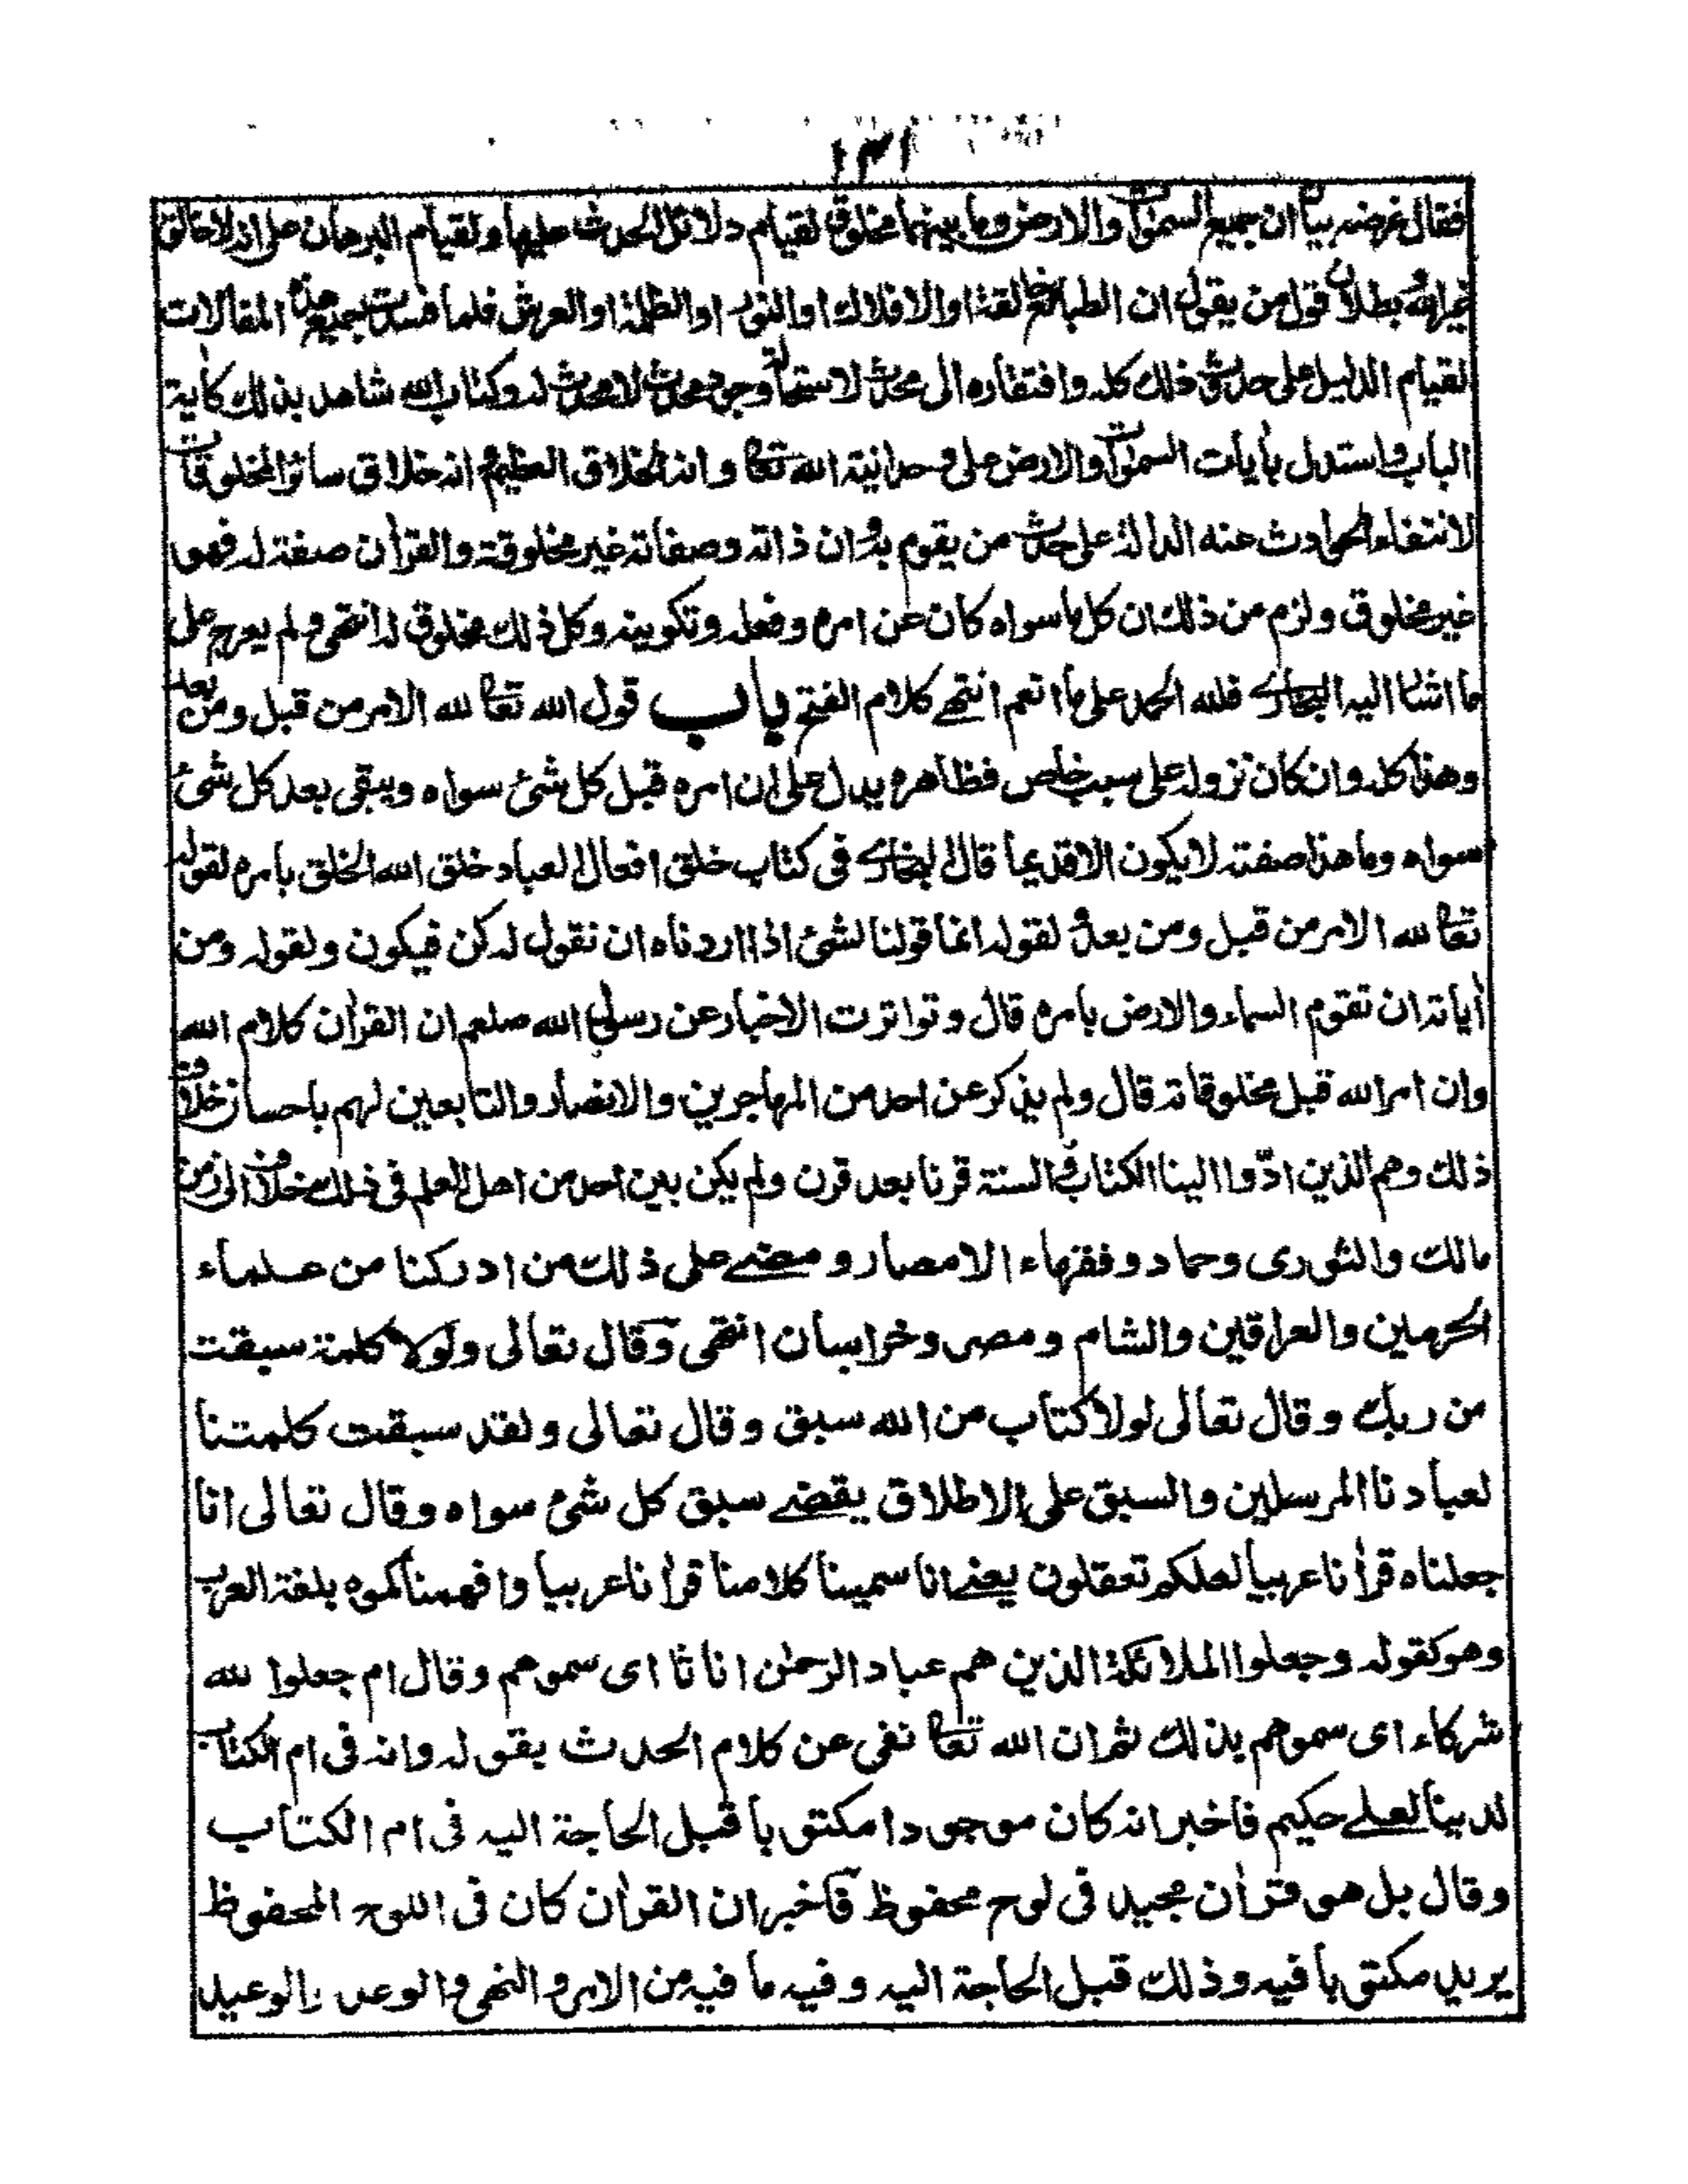 ١٣١
فقال غرضه بيان ان جميع السموات والارض وما بينهما مخلوق لقيام دلائل الحدث عليها ولقيام البرهان على انه لا خالق
غير الله وبطلان قول من يقول ان الطبائع خالقة او الافلاك او النور او الظلمة او العرش فلما فسدت جميع هذه المقالات
لقيام الدليل على حدوث ذلك كله وافتقاره الى محدث لاستحالة وجود محدث لا محدث له وكتاب الله شاهد بذلك كآية
الباب واستدل بآيات السموات والارض على وحدانية الله تعا وانه الخلاق العظيم وانه خلاق سائر المخلوقات
لانتفاء الحوادث عنه الدالة على حدوث من يقوم به وان ذاته وصفاته غير مخلوقة والقرآن صفة له فهو
غير مخلوق ولزم من ذلك ان كل ما سواه كان عن امره وفعله وتكوينه وكل ذلك مخلوق له انتهى ولم يعرج على
ما اشار اليه البخارى فلله الحمد على ما انعم انتهى كلام الفتح باب قول الله تعا لله الامر من قبل ومن بعد
وهذا كله وان كان نزوله على سبب خاص فظاهره يدل على ان امره قبل كل شئ سواه ويبقى بعد كل شئ
سواه وما هذا صفته لا يكون الا قديما قال البخارى فى كتاب خلق افعال العباد خلق الله الخلق بامره لقوله
تعا لله الامر من قبل ومن بعد ولقوله انما قولنا لشئ اذا اردناه ان نقول له كن فيكون ولقوله ومن
آياته ان تقوم السماء والارض بامره قال وتواترت الاخبار عن رسول الله صلعم ان القرآن كلام الله
وان امر الله قبل مخلوقاته قال ولم يذكر عن احد من المهاجرين والانصار والتابعين لهم باحسان خلاف
ذلك وهم الذين ادّوا الينا الكتاب والسنة قرنا بعد قرن ولم يكن بين احد من اهل العلم فى ذلك خلاف الى زمن
مالك والثورى وحماد وفقهاء الامصار ومضى على ذلك من ادركنا من علماء
الحرمين والعراقين والشام ومصر وخراسان انتهى وقال تعالى ولولا كلمة سبقت
من ربك وقال تعالى لولا كتاب من الله سبق وقال تعالى ولقد سبقت كلمتنا
لعبادنا المرسلين والسبق على الاطلاق يقضى سبق كل شئ سواه وقال تعالى انا
جعلناه قرآنا عربيا لعلكم تعقلون يعنى انا سمينا كلامنا قرآنا عربيا وافهمناكموه بلغة العرب
وهو كقوله وجعلوا الملائكة الذين هم عباد الرحمٰن اناثا اى سموهم وقال ام جعلوا لله
شركاء اى سموهم بذلك ثم ان الله تعا نفى عن كلام الحدث بقوله وانه فى ام الكتاب
لدينا لعلى حكيم فاخبر انه كان موجودا مكتوبا قبل الحاجة اليه فى ام الكتاب
وقال بل هو قرآن مجيد فى لوح محفوظ فاخبر ان القرآن كان فى اللوح المحفوظ
يريد مكتوبا فيه وذلك قبل الحاجة اليه وفيه ما فيه من الامر والنهى والوعد والوعيد